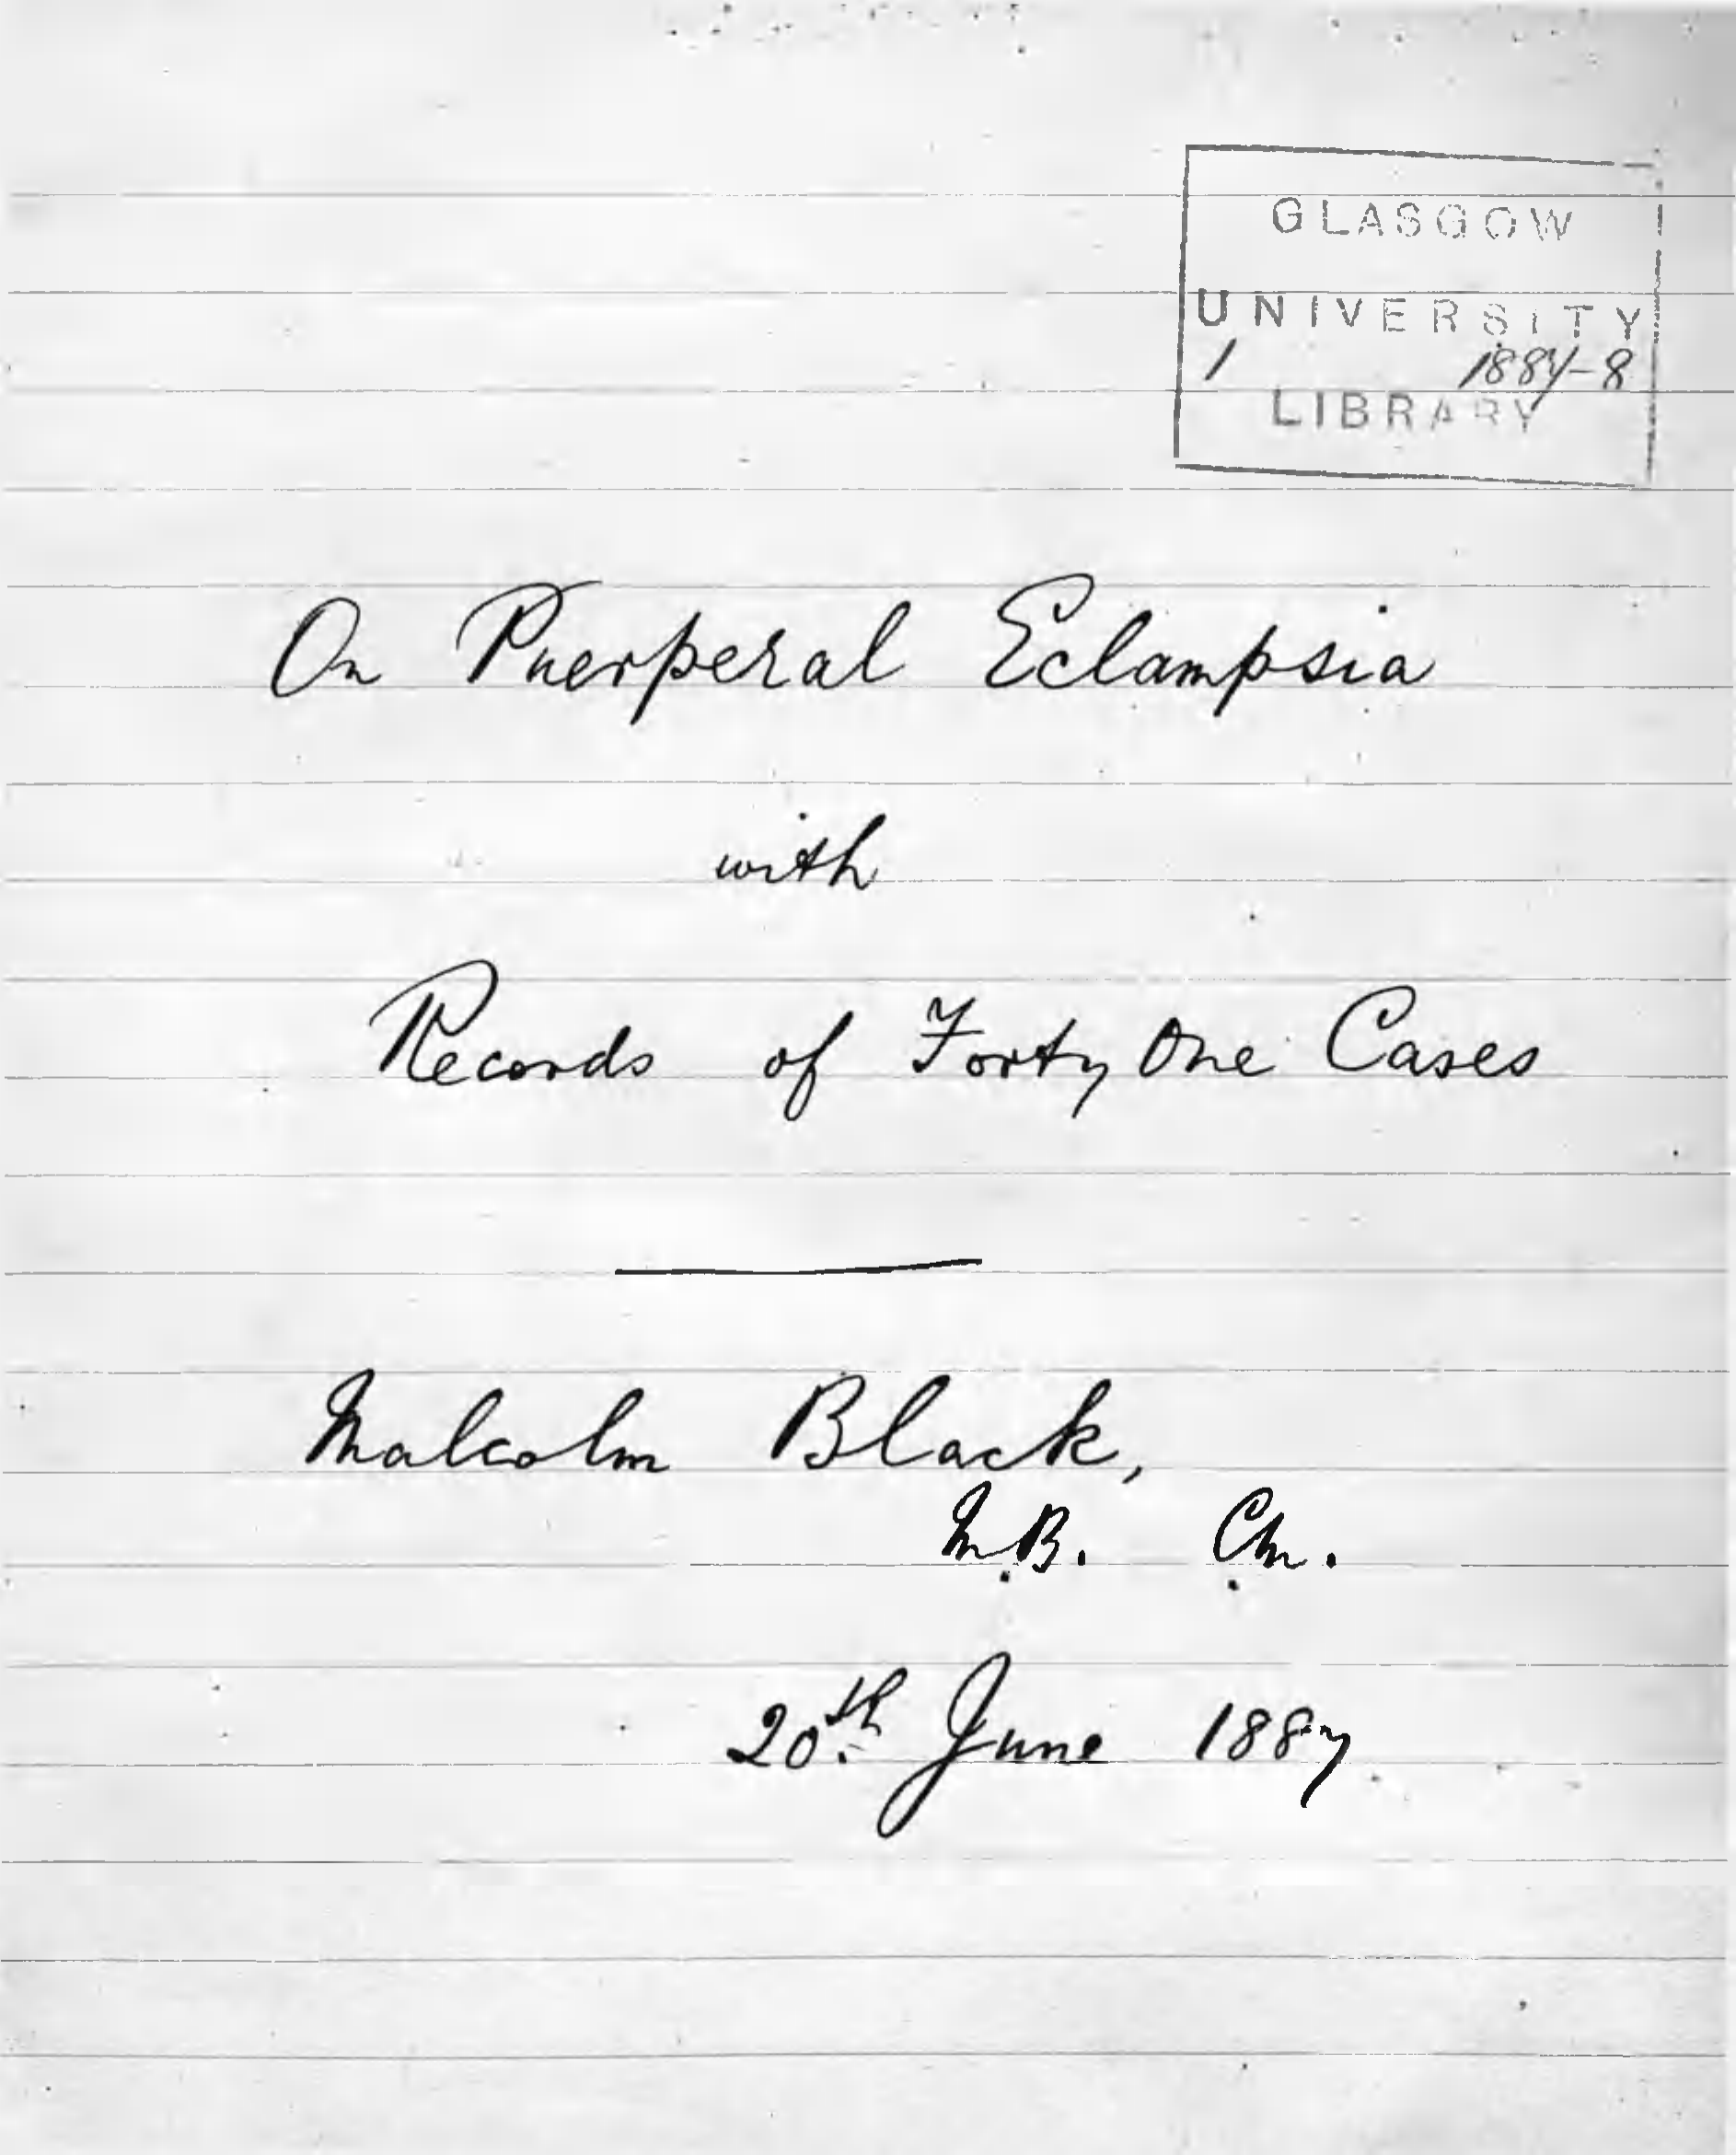 GLASGOW
UNIVERSITY
1 1887-8
LIBRARY
On Puerperal Eclampsia
with
Records of Forty One Cases
Malcolm Black,
M.B. C.M.
20th June 1887